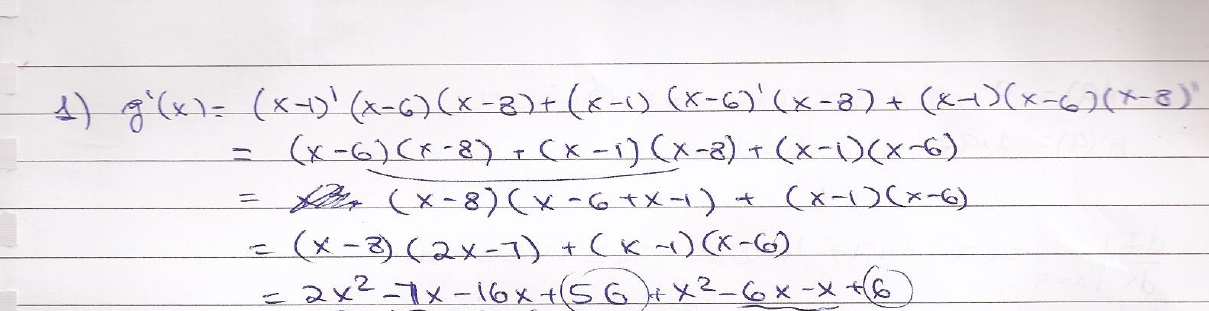 1) g'(x) = (x-1)' (x-6) (x-8) + (x-1) (x-6)' (x-8) + (x-1)(x-6)(x-8)'
= (x-6)(x-8) + (x-1)(x-8) + (x-1)(x-6)
= (x-8)(x-6+x-1) + (x-1)(x-6)
= (x-8)(2x-7) + (x-1)(x-6)
= 2x²-7x-16x+56+x²-6x-x+6